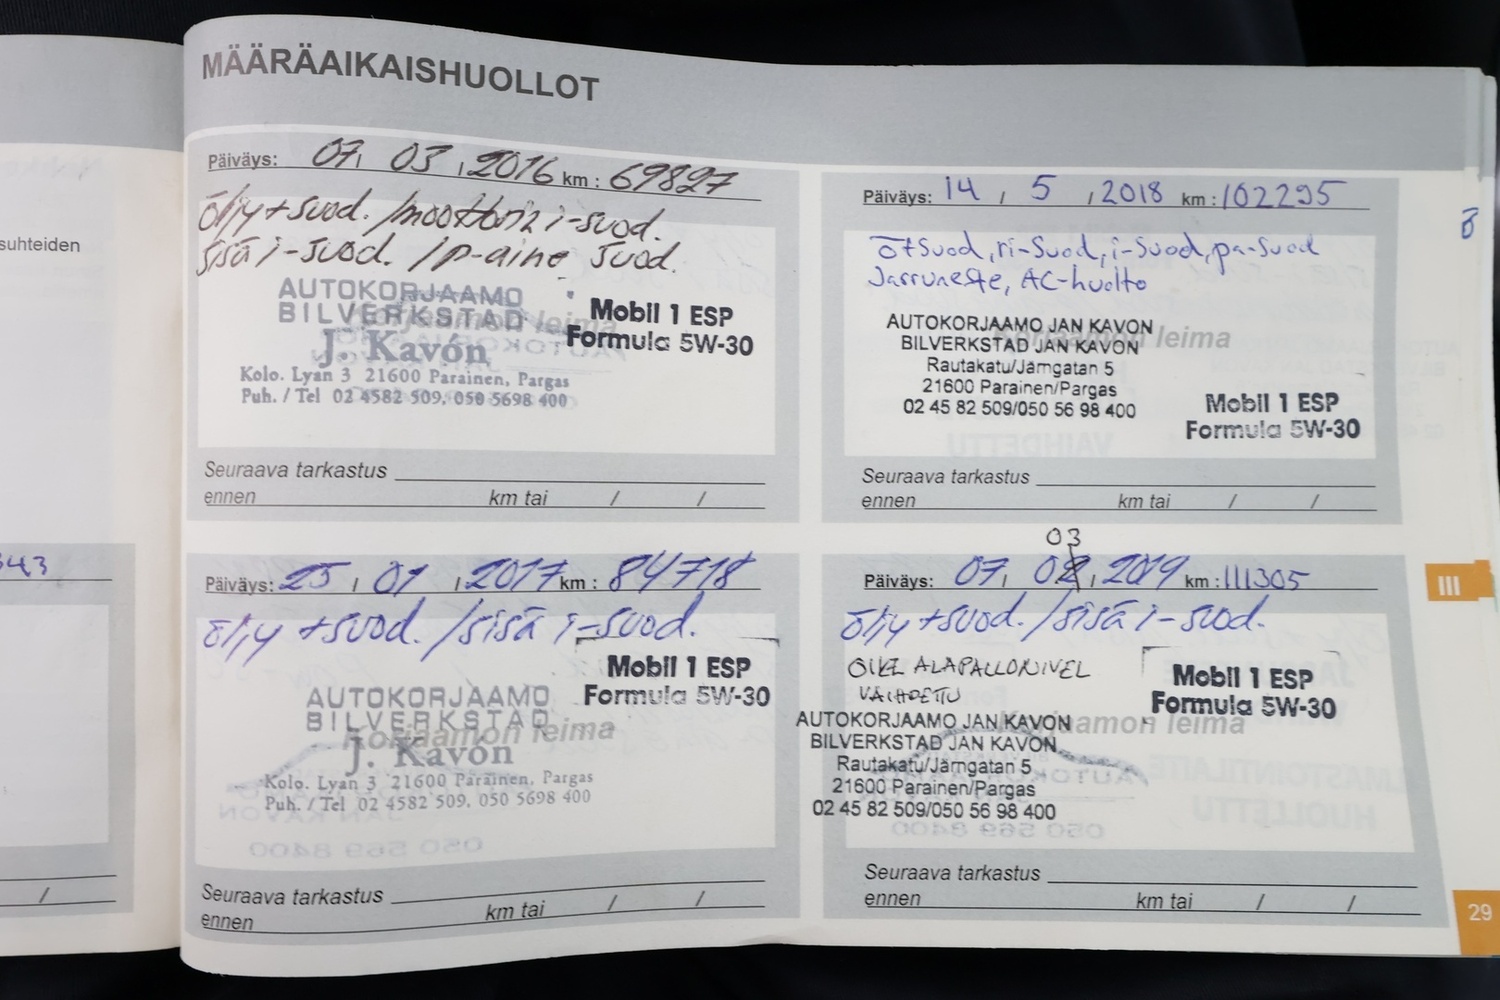 MÄÄRÄAIKAISHUOLLOT
suhteiden
343
/
Päiväys: 07, 03, 2016 km: 69827
öljy+suod. /moottorin i-suod.
sisä i-suod. /p-aine suod.
AUTOKORJAAMO
BILVERKSTAD
Korjaamon leima
J. Kavón
Kolo. Lyan 3 21600 Parainen, Pargas
Puh. / Tel 02 4582 509, 050 5698 400
Mobil 1 ESP
Formula 5W-30
Seuraava tarkastus
ennen km tai / /
Päiväys: 25 / 01 / 2017 km: 84718
öljy+suod. /sisä i-suod.
Mobil 1 ESP
Formula 5W-30
AUTOKORJAAMO
BILVERKSTAD
Korjaamon leima
J. Kavón
Kolo. Lyan 3 21600 Parainen, Pargas
Puh. / Tel 02 4582 509, 050 5698 400
Seuraava tarkastus
ennen km tai / /
Päiväys: 14 / 5 / 2018 km: 102295
ö+suod, ri-suod, i-suod, pa-suod
Jarruneste, AC-huolto
AUTOKORJAAMO JAN KAVON
Korjaamon leima
BILVERKSTAD JAN KAVON
Rautakatu/Järngatan 5
21600 Parainen/Pargas
02 45 82 509/050 56 98 400
Mobil 1 ESP
Formula 5W-30
Seuraava tarkastus
ennen km tai / /
03
Päiväys: 07, 02, 2019 km: 111305
öljy+suod. /sisä i-suod.
OIKE ALAPALLONIVEL
VAIHDETTU
Mobil 1 ESP
Formula 5W-30
AUTOKORJAAMO JAN KAVON
Korjaamon leima
BILVERKSTAD JAN KAVON
Rautakatu/Järngatan 5
21600 Parainen/Pargas
02 45 82 509/050 56 98 400
Seuraava tarkastus
ennen km tai / /
III
29